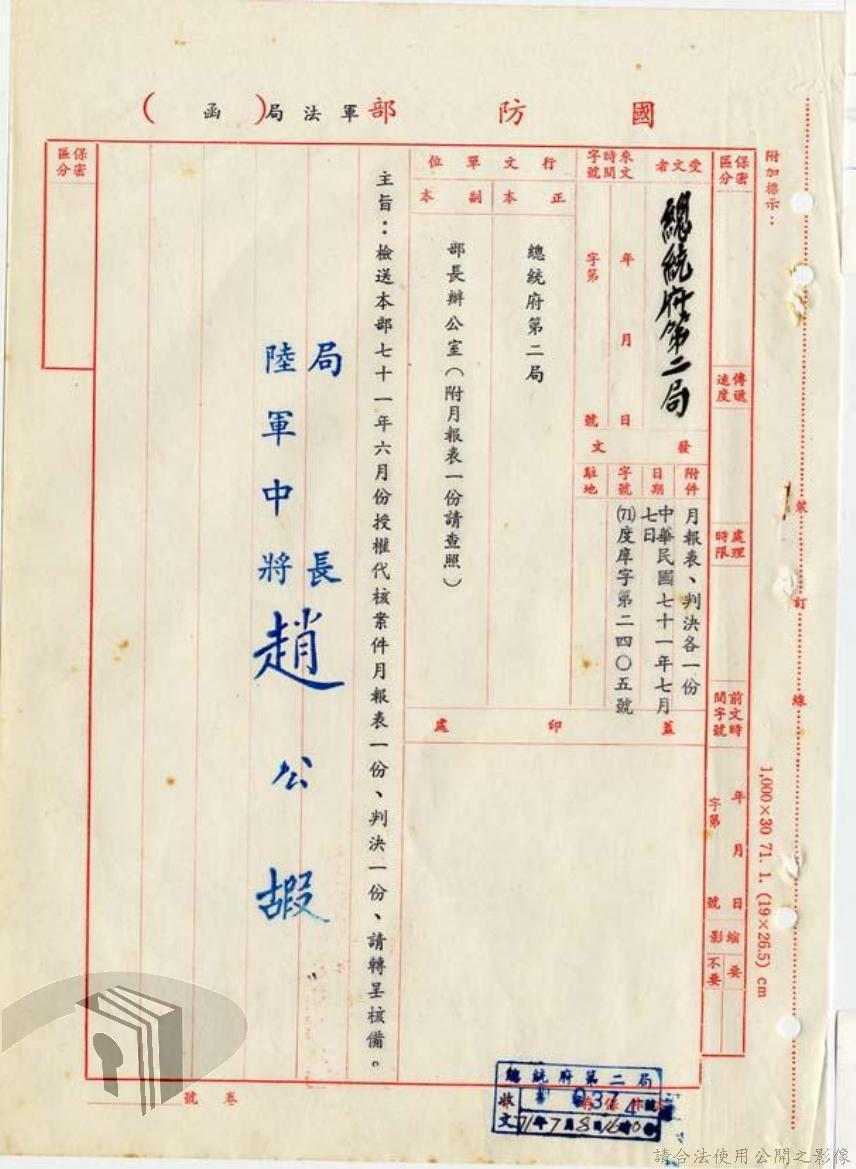 國防部軍法局(函)
附加標示:
保密區分
傳遞速度
處理時限
前文時間字號
年 月 日
字第 號
縮影
要
不要
受文者
總統府第二局
來文時間字號
年 月 日
字第 號
發文
附件
月報表、判決各一份
日期
中華民國七十一年七月七日
字號
(71)度庠字第二四〇五號
駐地
行文單位
正本
總統府第二局
副本
部長辦公室(附月報表一份請查照)
蓋印處
主旨:檢送本部七十一年六月份授權代核案件月報表一份、判決一份、請轉呈核備。
局長
陸軍中將趙公嘏
保密區分
卷號
裝訂線
1,000×30 71. 1. (19×26.5) cm
總統府第二局
收文
71年7月8日16時0分
請合法使用公開之影像